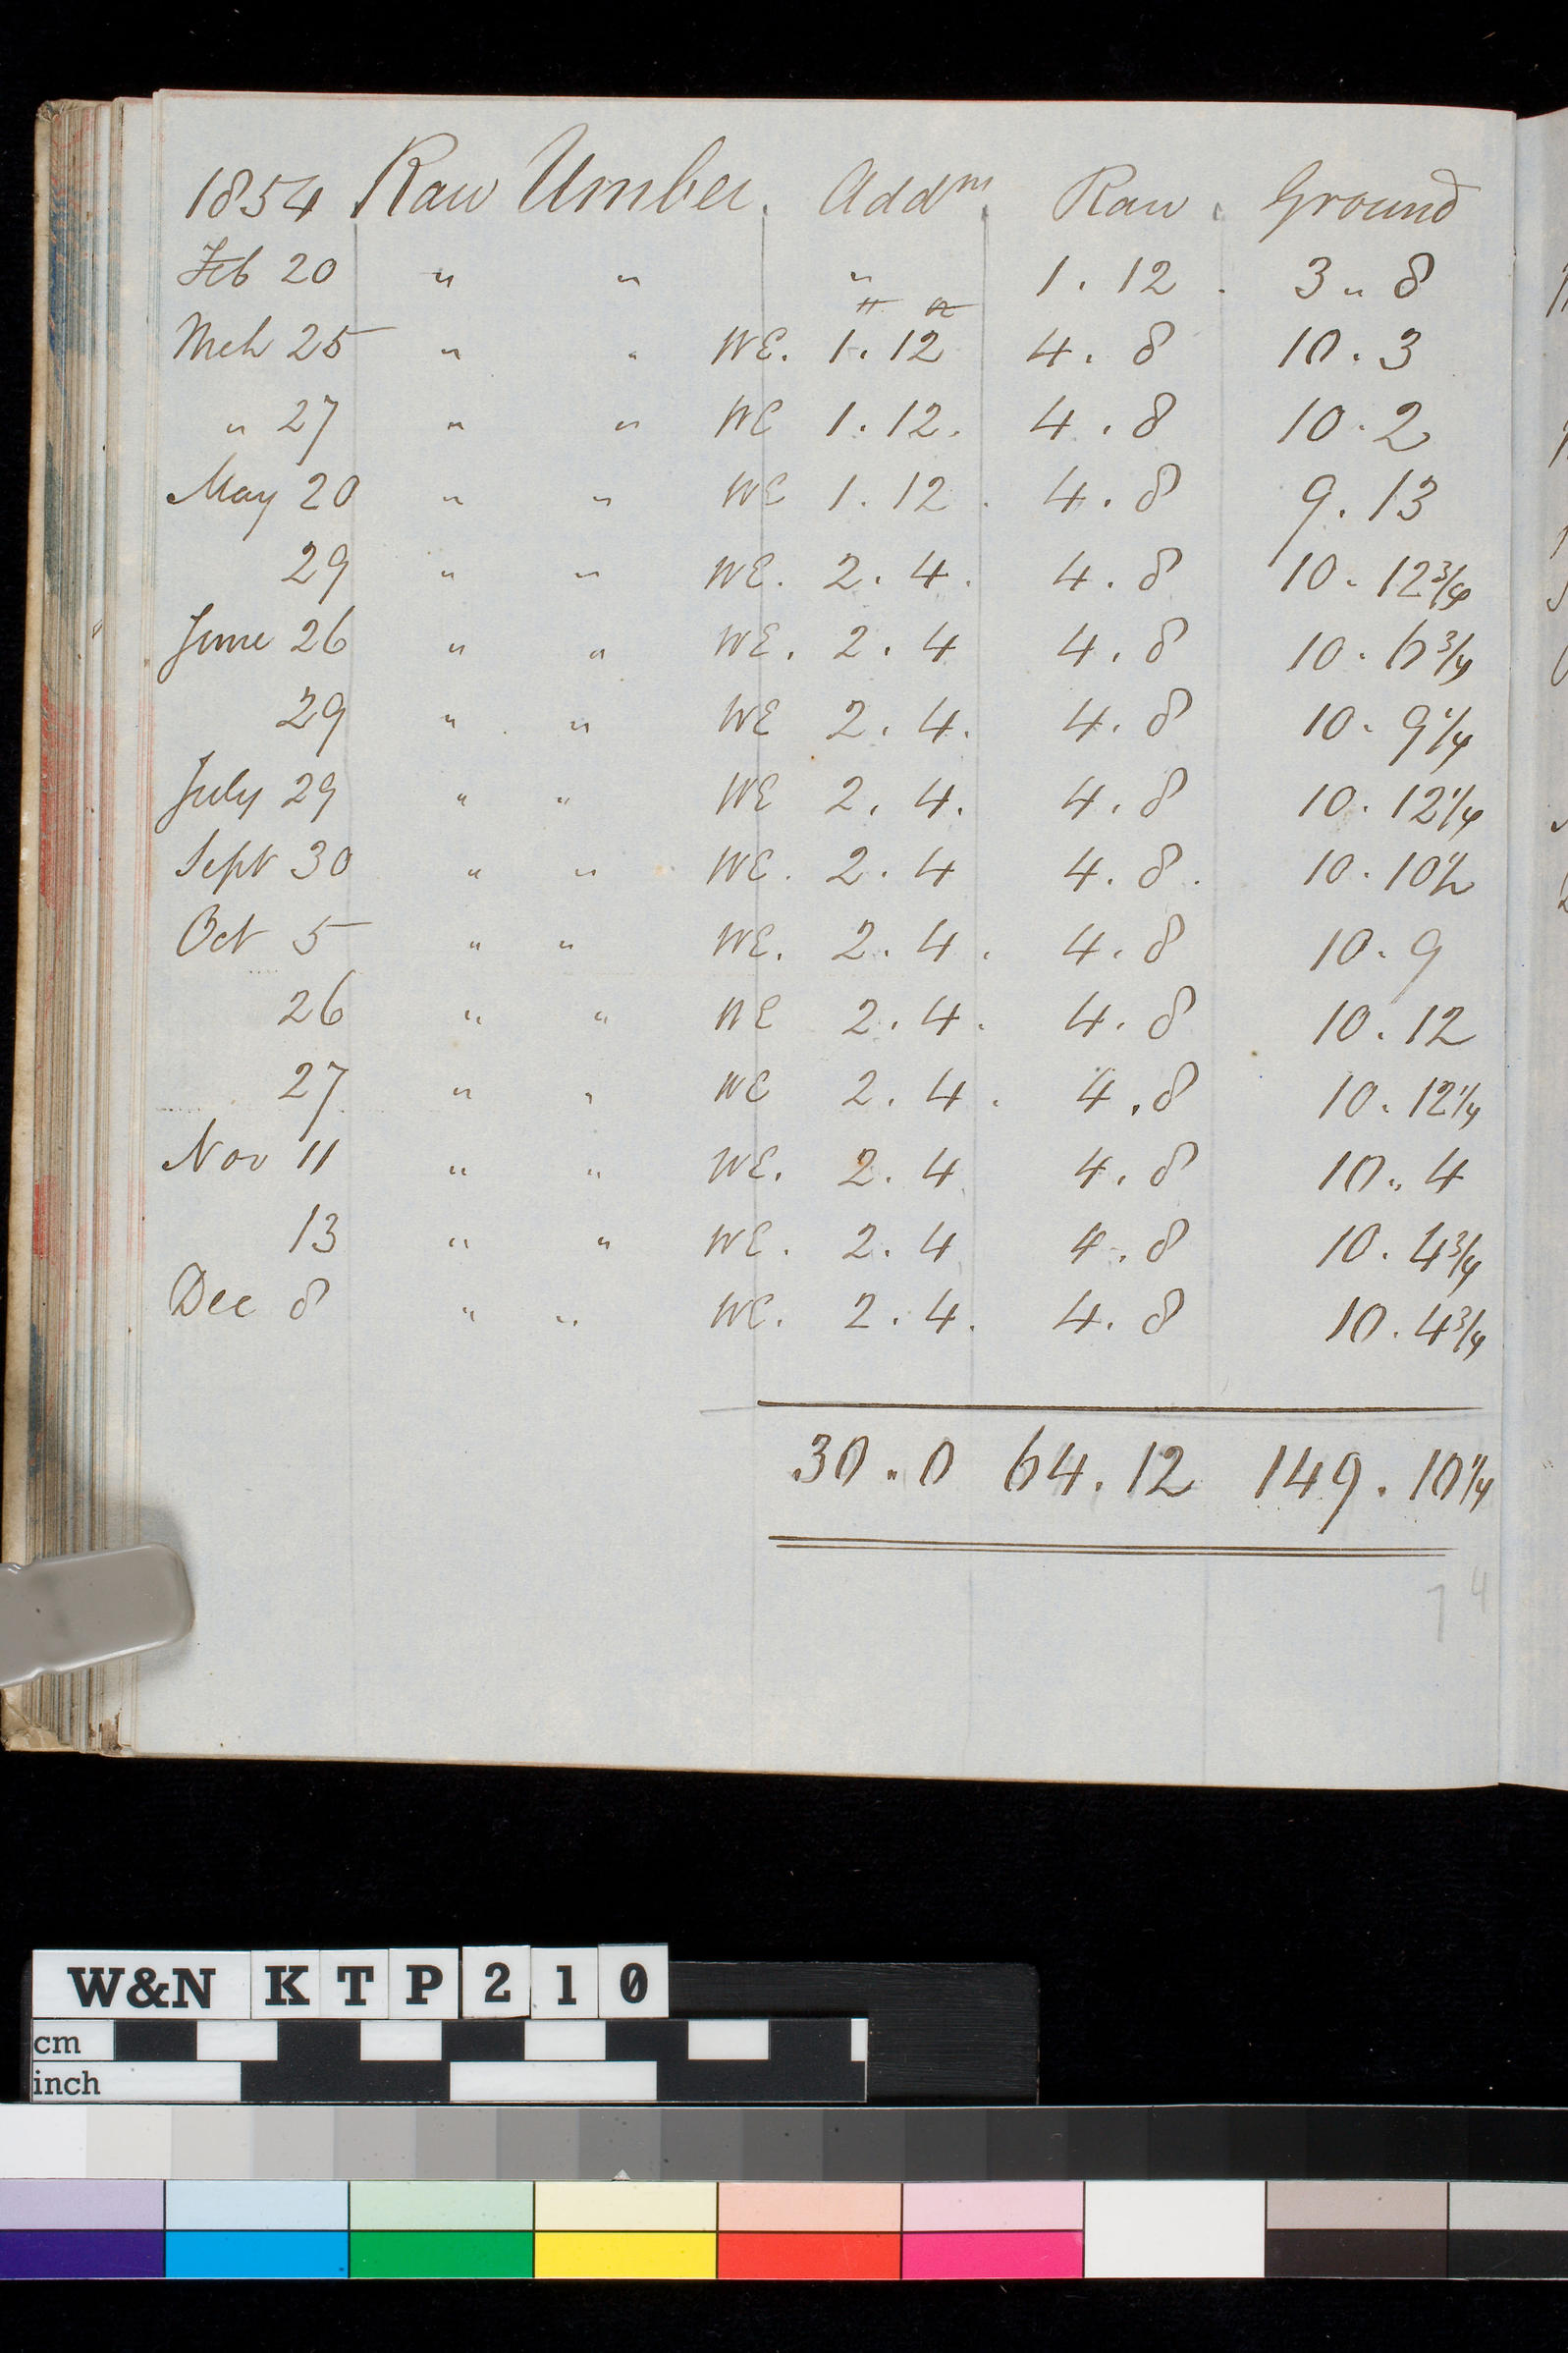 1854 Raw Umber. Addⁿ. Raw. Ground
Feb 20 " " " 1.12. 3 " 8
Mch 25 " " WE. 1.12 4.8 10.3
" 27 " " WE 1.12. 4.8 10.2
May 20 " " WE 1.12. 4.8 9.13
29 " " WE. 2.4. 4.8 10.12 3/4
June 26 " " WE. 2.4 4.8 10.6 3/4
29 " " WE 2.4. 4.8 10.9 1/4
July 29 " " WE 2.4. 4.8 10.12 1/4
Sept 30 " " WE. 2.4 4.8. 10.10 1/2
Oct 5 " " WE. 2.4. 4.8 10.9
26 " " WE 2.4. 4.8 10.12
27 " " WE 2.4. 4.8 10.12 1/4
Nov 11 " " WE. 2.4 4.8 10.4
13 " " WE. 2.4 4.8 10.4 3/4
Dec 8 " " WE. 2.4. 4.8 10.4 3/4
30.0 64.12 149.10 1/4
W&N KTP210
cm
inch